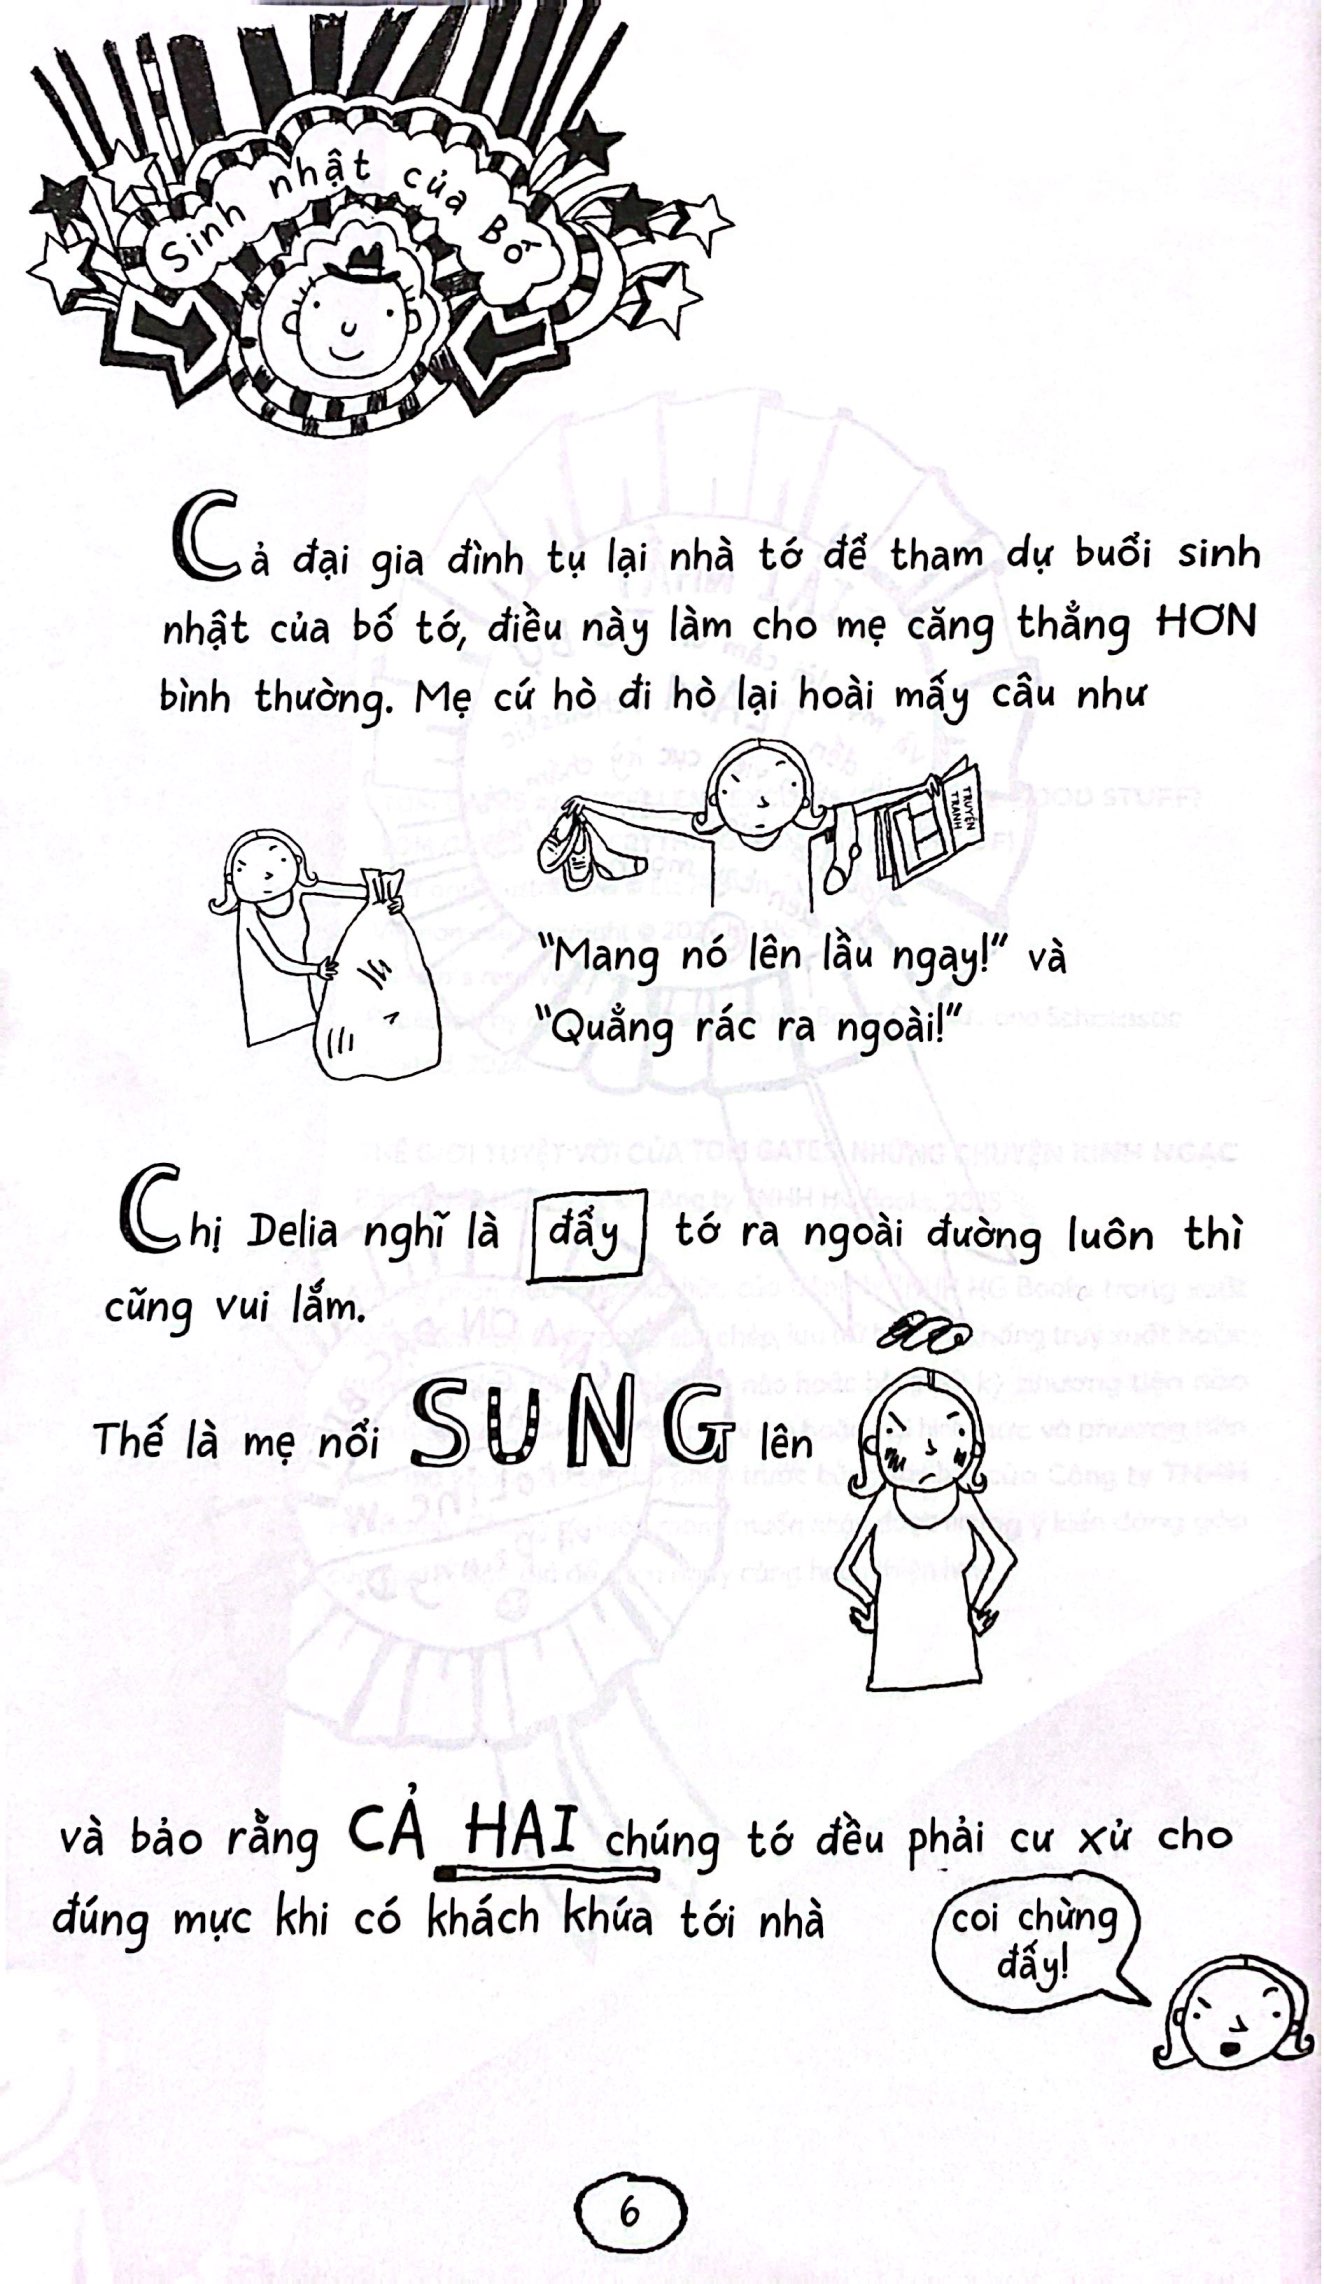 Sinh nhật của Bố
Cả đại gia đình tụ lại nhà tớ để tham dự buổi sinh
nhật của bố tớ, điều này làm cho mẹ căng thẳng HƠN
bình thường. Mẹ cứ hò đi hò lại hoài mấy câu như
TRUYỆN
TRANH
"Mang nó lên lầu ngay!" và
"Quẳng rác ra ngoài!"
Chị Delia nghĩ là đẩy tớ ra ngoài đường luôn thì
cũng vui lắm.
Thế là mẹ nổi SUNG lên
và bảo rằng CẢ HAI chúng tớ đều phải cư xử cho
đúng mực khi có khách khứa tới nhà
coi chừng
đấy!
6